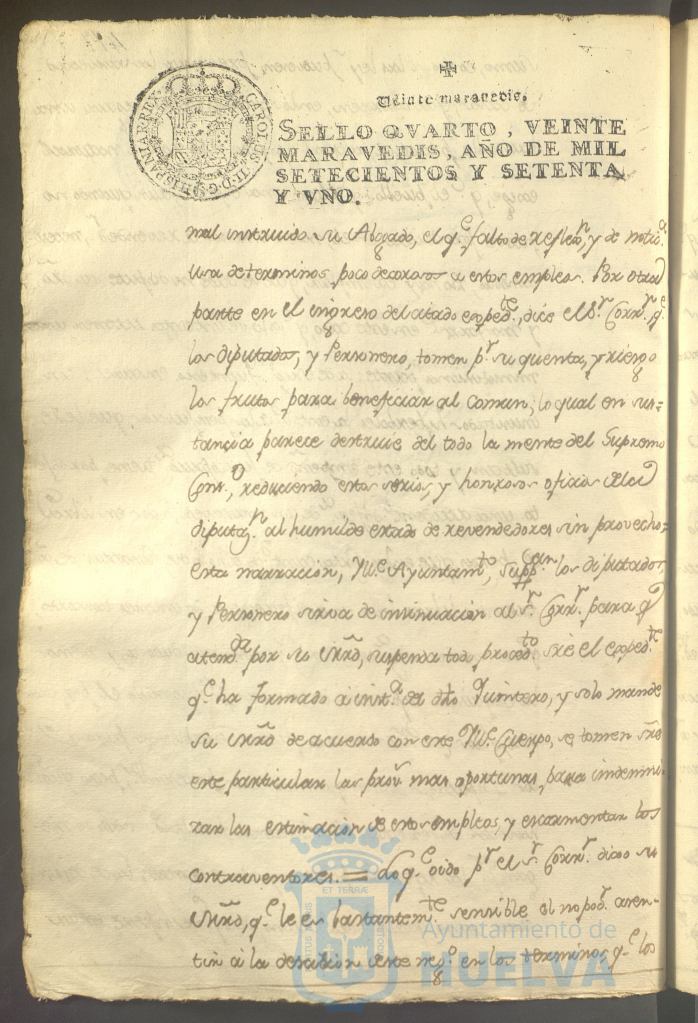 Veinte maravedis.
SELLO QVARTO, VEINTE
MARAVEDIS, AÑO DE MIL
SETECIENTOS Y SETENTA
Y VNO.
CAROLUS III·D·G·HISPANIAR·REX
mal instruido su Abogado, el q.e falto de reflexn, y de
usa de terminos poco decorosos a estos empleos. Por otra
parte en el ingreso del citado expedte, dice el Sr Corrr q.e
los diputados, y Personero, tomen pr su quenta, y riesgo
los frutos para beneficiar al comun; lo qual en sus=
tancia parece destruie del todo la mente del Supremo
Conso, reduciendo estos serios, y honrosos oficios de la
diputazn al humilde estado de revendedores sin provecho
esta narracion, Ylle Ayuntamto, suppcan los diputados
y Personero sirva de insinuacion al Sr Corrr para q
por su suspenda todo procedto sre el expedte
q.e ha formado a instª del dho Quintero, y solo mande
su de acuerdo con este Yll.e Cuerpo, se tomen sre
este particular las provs mas oportunas, para indemni
zar las estimacion de estos empleos, y escarmentar los
contraventores. = Lo q.e oido pr el Sr Corrr dixo su
q.e le es bastantemte sensible el no podr asen-
tir a la decision de este en los terminos, q.e los
ET TERRÆ
Ayuntamiento de
HUELVA